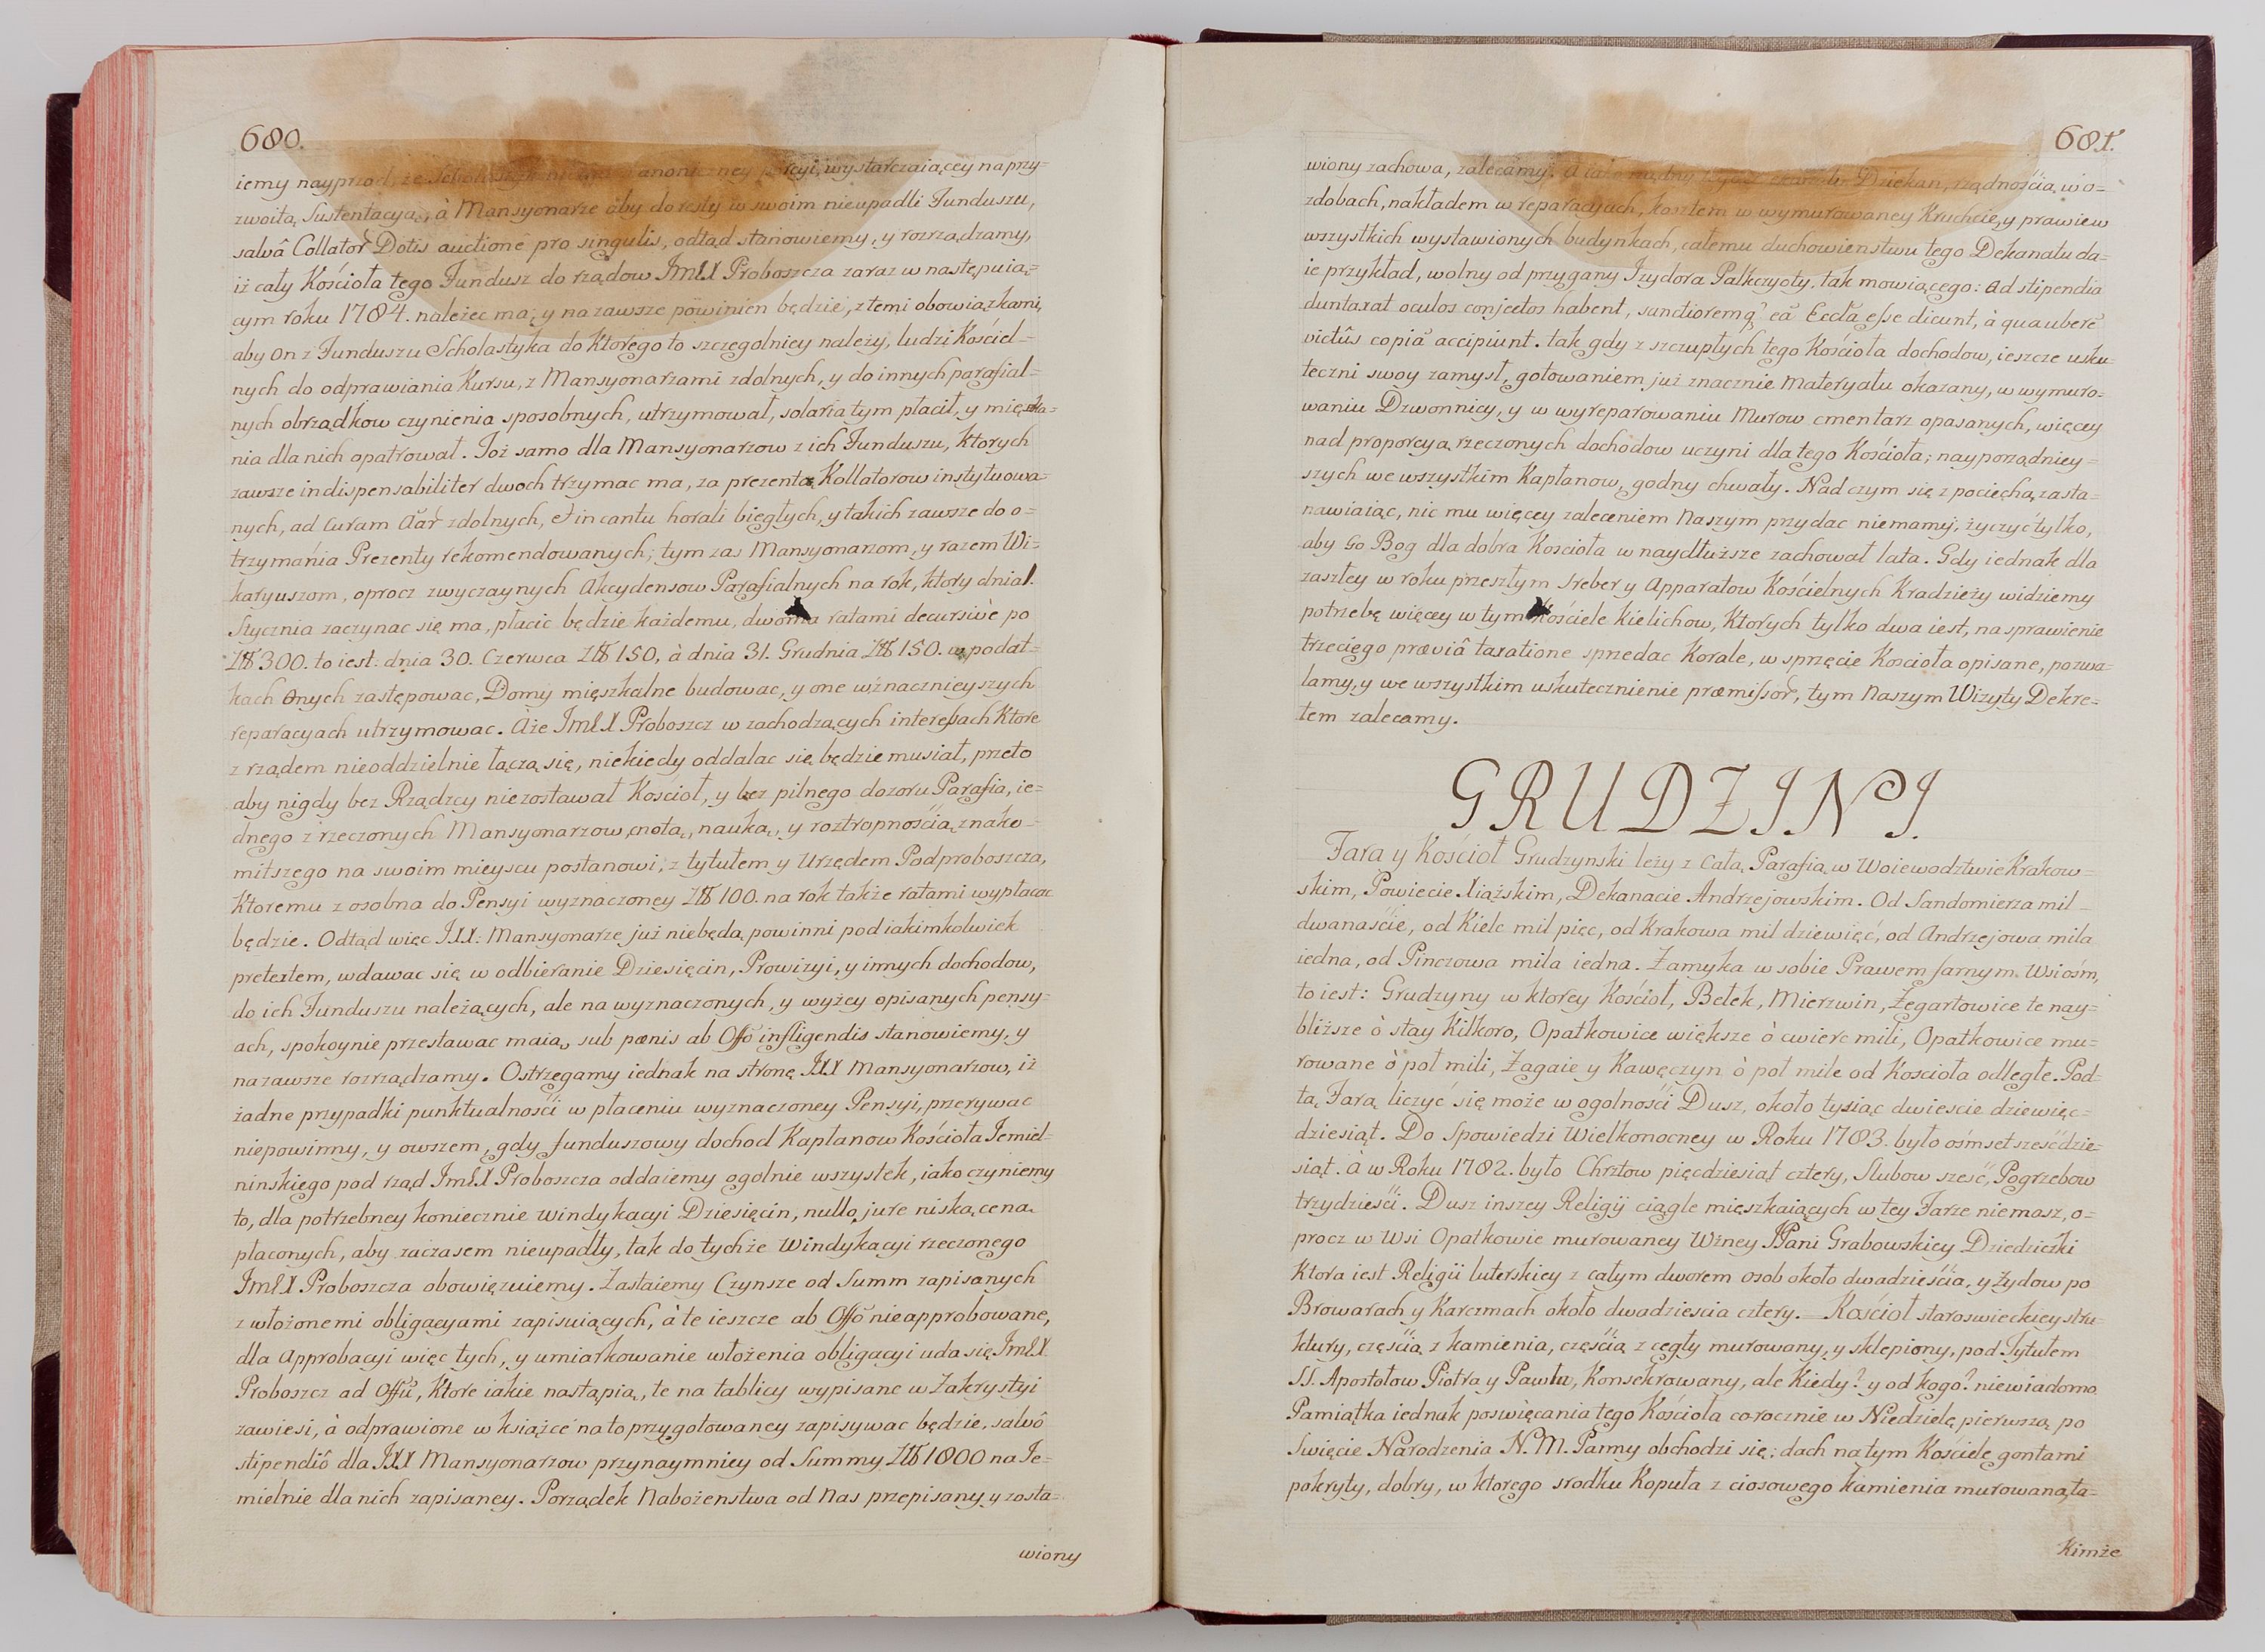 680.
iemy nayprzod, że wystarczaiącey na przy=
zwoitą Sustentacyą, à Mansyonarze aby do resty w swoim nieupadli Funduszu,
salvâ Collator Dotis auctione pro singulis, odtąd stanowiemy, y rozrządzamy,
iż cały Kościoła tego Fundusz do rządow JmćX Proboszcza zaraz w następuią=
cym roku 1784. należec ma, y na zawsze powinien będzie, z temi obowiązkami,
aby on z Funduszu Scholastyka do Ktorego to szczegolniey należy, ludzi Kościel=
nych do odprawiania Kursu, z Mansyonarzami zdolnych, y do innych parafial=
nych obrządkow czynienia sposobnych, utrzymował, solaria tym płacił, y mięszka=
nia dla nich opatrował. Toż samo dla Mansyonarzow z ich Funduszu, Ktorych
zawsze indispensabiliter dwoch trzymac ma, za prezentą Kollatorow instytuowa=
nych, ad Curam Aar zdolnych, et in cantu horali biegłych, y takich zawsze do o=
trzymánia Prezenty rekomendowanych; tym zas Mansyonarzom, y razem Wi=
karyuszom, oprocz zwyczaynych Akcydensow Parafialnych na rok, ktory dnia 1.
Stycznia zaczynac się ma, płacic będzie każdemu, dwoma ratami decursivè po
Zł 300. to iest: dnia 30. Czerwca Zł 150, à dnia 31. Grudnia Zł 150. w podat=
kach onych zastępowac, Domy mięszkalne budowac, y one w znacznieyszych
reparacyach utrzymowac. Aże JmćX Proboszcz w zachodzących interessach Ktore
z rządem nieoddzielnie łączą się, niekiedy oddalac się będzie musiał, przeto
aby nigdy bez Rządzcy niezostawał Kosciol, y bez pilnego dozoru Parafia, ie=
dnego z rzeczonych Mansyonarzow, cnotą, nauką, y roztropnością znako=
mitszego na swoim mieyscu postanowi, z tytułem y Urzędem Podproboszcza,
Ktoremu z osobna do Pensyi wyznaczoney Zł 100. na rok także ratami wypłacac
będzie. Odtąd więc JXX: Mansyonarze już niebędą powinni pod iakimkolwiek
pretextem, wdawac się w odbieranie Dziesięcin, Prowizyi, y innych dochodow,
do ich Funduszu należących, ale na wyznaczonych, y wyżey opisanych pensy=
ach, spokoynie przestawac maią, sub pœnis ab Offo infligendis stanowiemy, y
na zawsze rozrządzamy. Ostrzegamy iednak na stronę JXX Mansyonarzow, iż
żadne przypadki punktualności w płaceniu wyznaczoney Pensyi, przerywac
niepowinny, y owszem, gdy funduszowy dochod Kapłanow Kościoła Jemiel=
ninskiego pod rząd JmćX Proboszcza oddaiemy ogolnie wszystek, iako czyniemy
to, dla potrzebney koniecznie windykacyi Dziesięcin, nullo jure niską ceną
płaconych, aby zaczasem nieupadły, tak do tychże Windykacyi rzeczonego
JmćX Proboszcza obowięzuiemy. Zastaiemy Czynsze od Summ zapisanych
z włożonemi obligacyami zapisuiących, à te ieszcze ab Offo nieapprobowane,
dla Approbacyi więc tych, y umiarkowanie włożenia obligacyi uda się JmćX
Proboszcz ad Offiu, Ktore iakie nastąpią, te na tablicy wypisane w Zakrystyi
zawiesi, à odprawione w książce na to przygotowaney zapisywac będzie, salvô
stipendiô dla JXX Mansyonarzow przynaymniey od Summy Zł 1800 na Je=
mielnie dla nich zapisaney. Porządek Nabożenstwa od Nas przepisany y zosta=
wiony
681.
wiony zachowa, zalecamy. Dziekan, rządnością, w o=
zdobach, nakładem w reparacyach, kosztem w wymurowaney Kruchcie, y prawie w
wszystkich wystawionych budynkach, całemu duchowienstwu tego Dekanatu da=
ie przykład, wolny od przygany Jzydora Palkczyoty, tak mowiącego: Ad stipendia
duntaxat oculos conjectos habent, sanctioremq ea Eccła esse dicunt, à qua uberê
victûs copiâ accipiunt. tak gdy z szczupłych tego Kościoła dochodow, ieszcze usku=
teczni swoy zamysł, gotowaniem już znacznie materyału okazany, w wymuro=
waniu Dzwonnicy, y w wyreparowaniu Murow cmentarz opasanych, więcey
nad proporcyą rzeczonych dochodow uczyni dla tego Kościoła; nayporządniey=
szych we wszystkim Kapłanow, godny chwały. Nad czym się z pociechą zasta=
nawiaiąc, nic mu więcey zaleceniem Naszym przydac niemamy, życzyć tylko,
aby Go Bog dla dobra Kosciola w naydłuższe zachował lata. Gdy iednak dla
zaszłey w roku przeszłym Srebery Apparatow Kościelnych Kradzieży widziemy
potrzebę więcey w tym Kościele Kielichow, Ktorych tylko dwa iest, na sprawienie
trzeciego præviâ taxatione sprzedac Korale, w sprzęcie Kosciola opisane, pozwa=
lamy, y we wszystkim uskutecznienie præmissor, tym Naszym Wizyty Dekre=
tem zalecamy.
GRUDZINY.
Fara y Kościoł Grudzynski leży z Całą Parafią w Woiewodztwie Krakow=
skim, Powiecie Xiążskim, Dekanacie Andrzejowskim. Od Sandomierza mil
dwanaście, od Kielc mil pięc, od Krakowa mil dziewięć, od Andrzejowa mila
iedna, od Pinczowa mila iedna. Zamyka w sobie Prawem farnym. Wsi ośm,
to iest: Grudzyny w ktorey Kościoł, Bełek, Mierzwin, Zegartowice te nay=
bliższe ò stay Kilkoro, Opatkowice większe ò cwierc mili, Opatkowice mu=
rowane ò poł mili, Zagaie y Kawęczyn ò poł mile od Kosciola odległe. Pod
tą Farą liczyć się może w ogolności Dusz, około tysiąc dwiescie dziewięc=
dziesiąt. Do Spowiedzi Wielkonocney w Roku 1783. było ośmset sześćdzie=
siąt. à w Roku 1782. było Chrztow pięcdziesiąt cztery, Slubow sześć, Pogrzebow
trzydzieści. Dusz inszey Religij ciągle mięszkaiących w tey Farze niemasz, o=
procz w Wsi Opatkowie murowaney Wżney JPani Grabowskiey Dziedziczki
Ktora iest Religii luterskiey z całym dworem osob około dwadzieścia, y żydow po
Browarach y Karczmach około dwadziescia cztery. Kościoł staroswieckiey stru=
ktury, częścią z kamienia, częścią z cegły murowany, y sklepiony, pod Tytułem
SS. Apostołow Piotra y Pawła, Konsekrowany, ale Kiedy? y od kogo? niewiadomo.
Pamiątka iednak poswięcania tego Kościoła corocznie w Niedzielę pierwszą po
Swięcie Narodzenia N. M. Panny obchodzi się; dach na tym Kościele gontami
pokryty, dobry, w ktorego srodku Kopuła z ciosowego kamienia murowana, ta=
Kimże